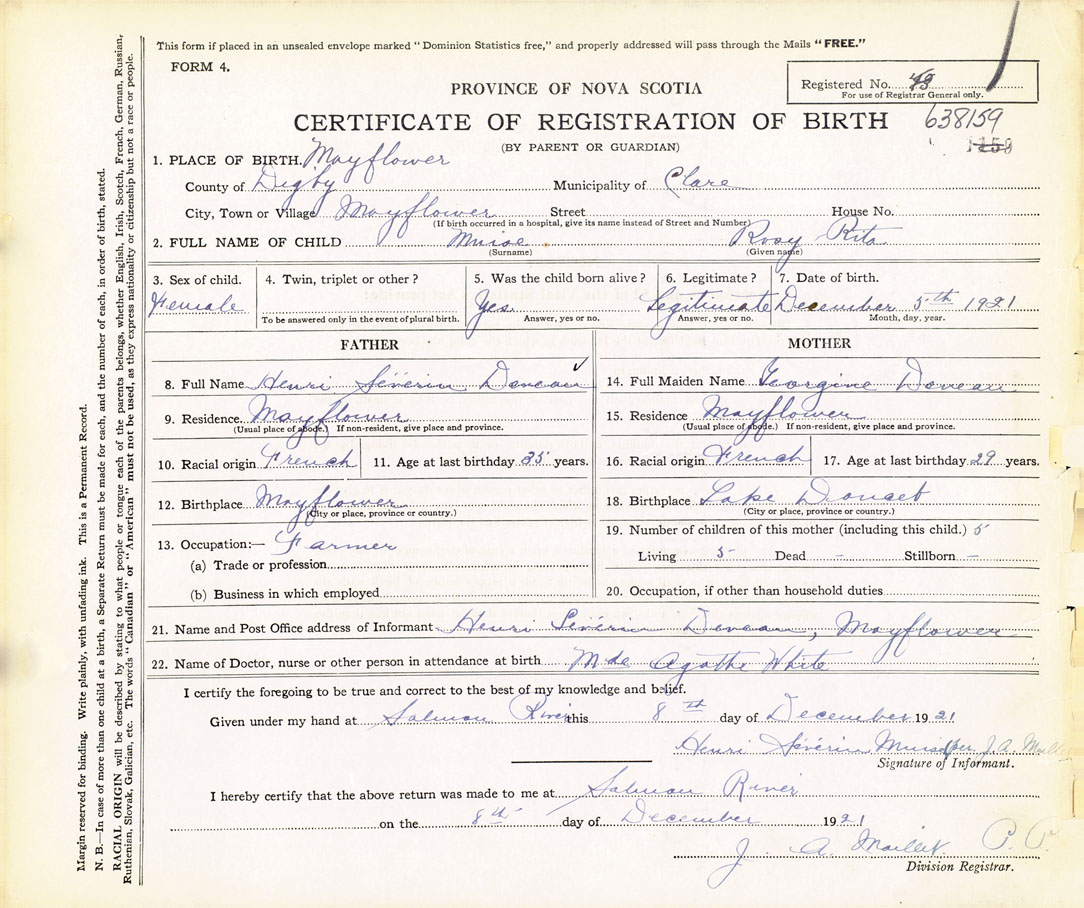 This form if placed in an unsealed envelope marked "Dominion Statistics free," and properly addressed will pass through the Mails "FREE."
FORM 4.
Registered No. 49
For use of Registrar General only.
PROVINCE OF NOVA SCOTIA
CERTIFICATE OF REGISTRATION OF BIRTH
638159
(BY PARENT OR GUARDIAN)
1. PLACE OF BIRTH. Mayflower
County of Digby Municipality of Clare
City, Town or Village Mayflower Street House No.
(If birth occurred in a hospital, give its name instead of Street and Number)
2. FULL NAME OF CHILD Muise Rosy Rita
(Surname) (Given name)
3. Sex of child. 4. Twin, triplet or other? 5. Was the child born alive? 6. Legitimate? 7. Date of birth.
Female Yes Legitimate December 5th 1921
To be answered only in the event of plural birth. Answer, yes or no. Answer, yes or no. Month, day, year.
FATHER
8. Full Name Henri Séverin Deveau
9. Residence Mayflower
(Usual place of abode.) If non-resident, give place and province.
10. Racial origin French 11. Age at last birthday 35 years.
12. Birthplace Mayflower
(City or place, province or country.)
13. Occupation:— Farmer
(a) Trade or profession
(b) Business in which employed
MOTHER
14. Full Maiden Name Georgine Doveau
15. Residence Mayflower
(Usual place of abode.) If non-resident, give place and province.
16. Racial origin French 17. Age at last birthday 29 years.
18. Birthplace Lake Doucet
(City or place, province or country.)
19. Number of children of this mother (including this child.) 5
Living 5 Dead - Stillborn -
20. Occupation, if other than household duties
21. Name and Post Office address of Informant Henri Séverin Deveau, Mayflower
22. Name of Doctor, nurse or other person in attendance at birth Mde Agathe White
I certify the foregoing to be true and correct to the best of my knowledge and belief.
Given under my hand at Salmon River this 8th day of December 1921
Henri Séverin Muise (per J. A. Maill
Signature of Informant.
I hereby certify that the above return was made to me at Salmon River
on the 8th day of December 1921
J. A. Maillet P. P.
Division Registrar.
Margin reserved for binding. Write plainly, with unfading ink. This is a Permanent Record.
N. B.—In case of more than one child at a birth, a Separate Return must be made for each, and the number of each, in order of birth, stated.
RACIAL ORIGIN will be described by stating to what people or tongue each of the parents belongs, whether English, Irish, Scotch, French, German, Russian,
Ruthenian, Slovak, Galician, etc. The words "Canadian" or "American" must not be used, as they express nationality or citizenship but not a race or people.